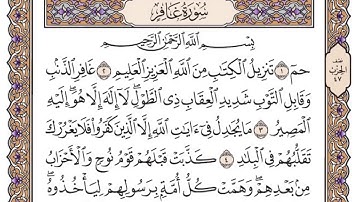 سُورَةُ غَافِرٍ
بِسْمِ اللَّهِ الرَّحْمَٰنِ الرَّحِيمِ
حمٓ ١ تَنزِيلُ الْكِتَٰبِ مِنَ اللَّهِ الْعَزِيزِ الْعَلِيمِ ٢ غَافِرِ الذَّنۢبِ
وَقَابِلِ التَّوْبِ شَدِيدِ الْعِقَابِ ذِى الطَّوْلِۖ لَآ إِلَٰهَ إِلَّا هُوَۖ إِلَيْهِ
الْمَصِيرُ ٣ مَا يُجَٰدِلُ فِىٓ ءَايَٰتِ اللَّهِ إِلَّا الَّذِينَ كَفَرُوا۟ فَلَا يَغْرُرْكَ
تَقَلُّبُهُمْ فِى الْبِلَٰدِ ٤ كَذَّبَتْ قَبْلَهُمْ قَوْمُ نُوحٍ وَالْأَحْزَابُ
مِنۢ بَعْدِهِمْۖ وَهَمَّتْ كُلُّ أُمَّةٍۭ بِرَسُولِهِمْ لِيَأْخُذُوهُۖ
الحزب
٤٧